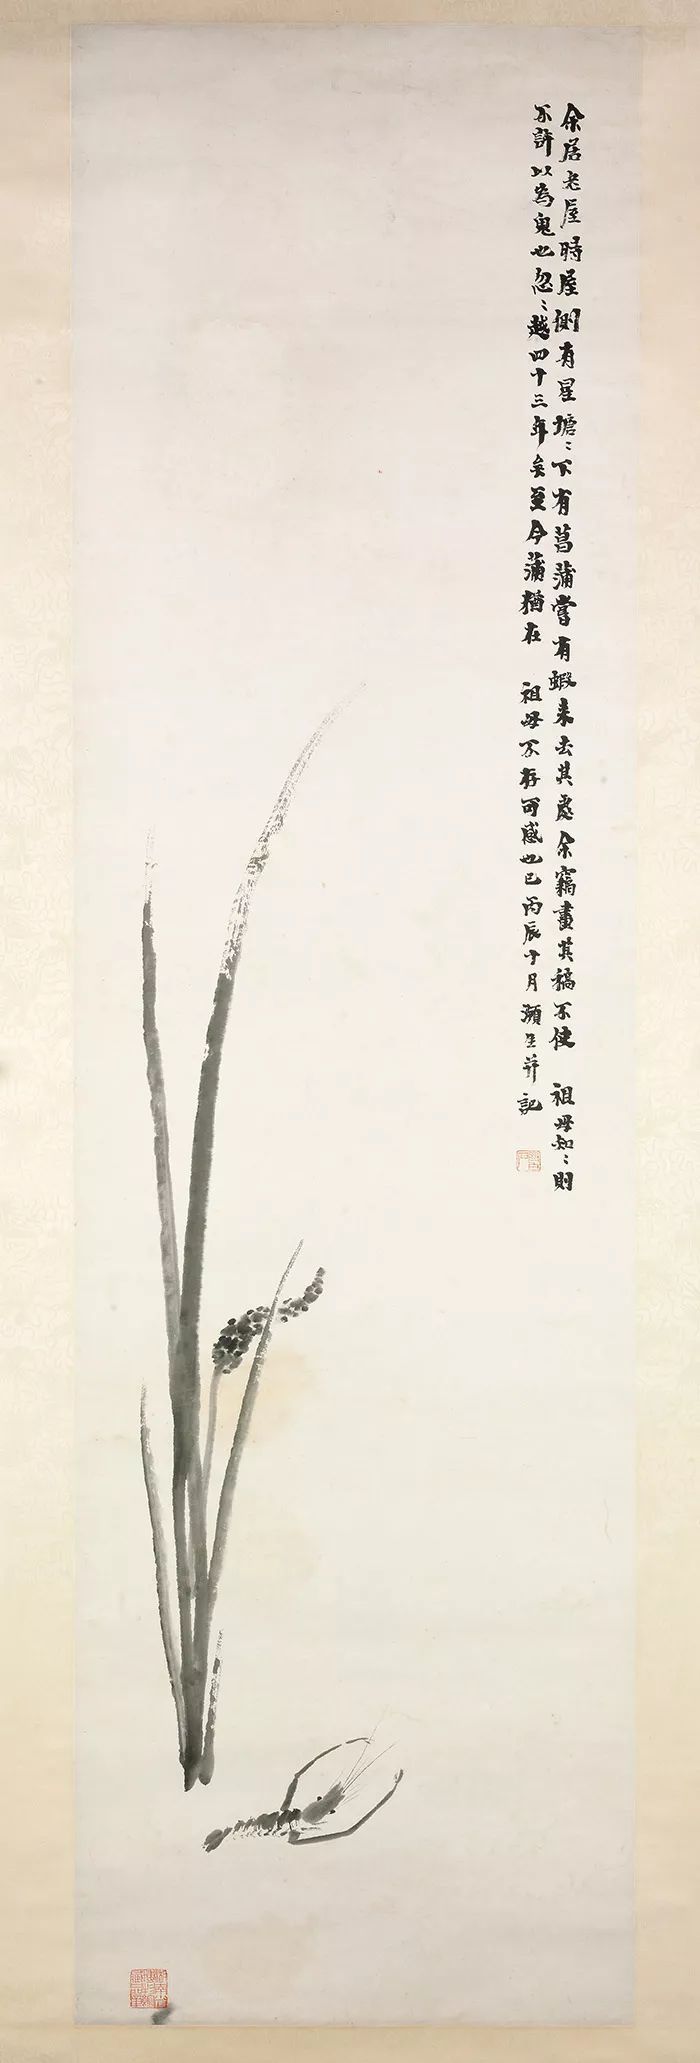 余居老屋時屋側有星塘〻下有菖蒲嘗有蝦來去其處余竊畫其稿不使 祖母知〻則
不許以為鬼也忽〻越四十三年矣至今蒲猶在 祖母不存可感也已丙辰十月瀕生并記